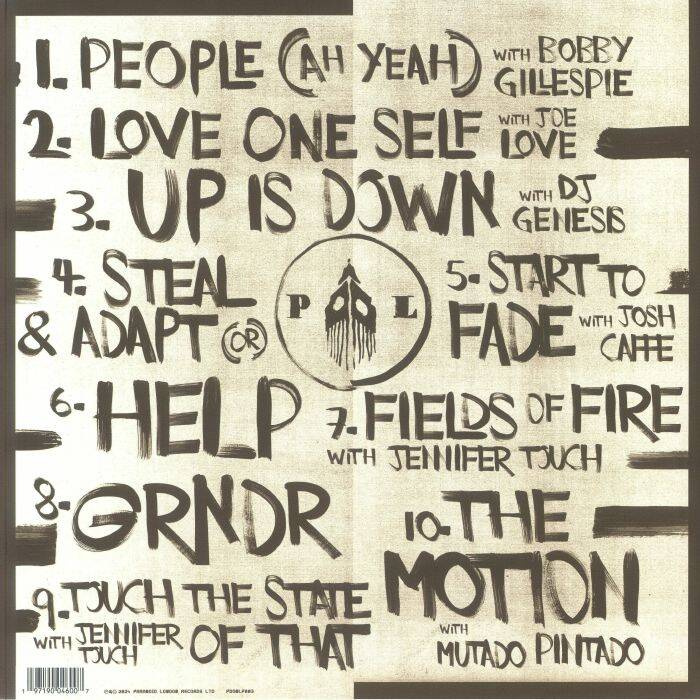 1. PEOPLE (AH YEAH) WITH BOBBY GILLESPIE
2. LOVE ONE SELF WITH JOE LOVE
3. UP IS DOWN WITH DJ GENESIS
4. STEAL & ADAPT (OR)
P L
5. START TO FADE WITH JOSH CAFFE
6. HELP
7. FIELDS OF FIRE WITH JENNIFER TOUCH
8. GRNDR
9. TOUCH THE STATE OF THAT WITH JENNIFER TOUCH
10. THE MOTION WITH MUTADO PINTADO
1 97190 04600 7
℗© 2024 PARANOID LONDON RECORDS LTD PDONLP003